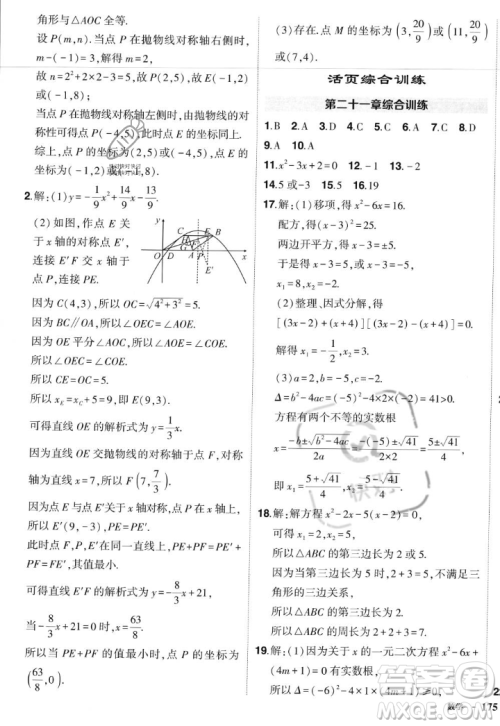 角形与△AOC 全等.
设 P(n,m). 当点 P 在抛物线对称轴右侧时,
m-(-1)=2,n-2=3,
所以 m=1,n=5,所以 P(5,1).
故 n=2²+2×2-1=7,所以点 E 的坐标为
(-1,8).
当点 P 在抛物线对称轴左侧时,由抛物线的
对称性可得 P(-1,1),此时点 E 坐标为
(-1,8).
综上,点 P 的坐标为(5,1)或(-1,1),点 E
的坐标为(-1,8).
2.解:(1)y=-1/9x²+14/9x-13/9.
(2)如图,作点 E 关
于 x 轴的对称点 E′,
连接 E′F 与 x 轴交
于点 P,连接 PE.
因为 C(4,3),所以 OC=√(4²+3²)=5.
因为 BC∥OA,所以∠OEC=∠AOE.
因为 OE 平分∠AOC,所以∠AOE=∠COE.
所以∠OEC=∠COE.
所以 CE=OC=5.
所以 x_E=x_C+5=9,即 E(9,3).
可得直线 OE 的解析式为 y=1/3x.
因为直线 OE 交抛物线的对称轴于点 F,对
称轴为直线 x=7,所以 F(7,7/3).
因为点 E 与点 E′关于 x 轴对称,点 P 在 x
轴上,所以 E′(9,-3),PE=PE′.
此时点 F,P,E′在同一直线上,PE+PF=
E′F,其值最小.
可得直线 E′F 的解析式为 y=-8/3x+21.
当-8/3x+21=0 时,x=63/8.
所以当 PE+PF 的值最小时,点 P 的坐标为
(63/8,0).
(3)存在. 点 M 的坐标为(3,20/9)或(11,20/9)
或(7,4).
活页综合训练
第二十一章综合训练
9.A 10.A
11.x²-3x+2=0 12.-2 13.-2
14.5 或-3 15.2 16.19
17.解:(1)移项,得 x²-6x=16.
配方,得(x-3)²=25.
两边开平方,得 x-3=±5.
x₁=8,x₂=-2.
(2)整理、因式分解,得
[(3x-2)+(x+4)][(3x-2)-(x+4)]
=0.
解得 x₁=-1/2,x₂=3.
(3)a=2,b=-5,c=-2.
Δ=b²-4ac=(-5)²-4×2×(-2)=41>0.
方程有两个不等的实数根
x=(-b±√(b²-4ac))/2a=(-(-5)±√41)/(2×2)=(5±√41)/4,
即 x₁=(5+√41)/4,x₂=(5-√41)/4.
18.解:解方程 x²-2x-5(x-2)=0,得
x₁=5,x₂=2.
所以△ABC 的第三边长为 2 或 5.
因为当第三边长为 5 时,2+3=5,不满足三
角形的三边关系,
所以△ABC 的第三边长为 2.
所以△ABC 的周长为 2+2+3=7.
19.解:(1)因为关于 x 的一元二次方程 x²-6x+
(4m+1)=0 有实数根,
所以Δ=(-6)²-4×1×(4m+1)≥0.
175